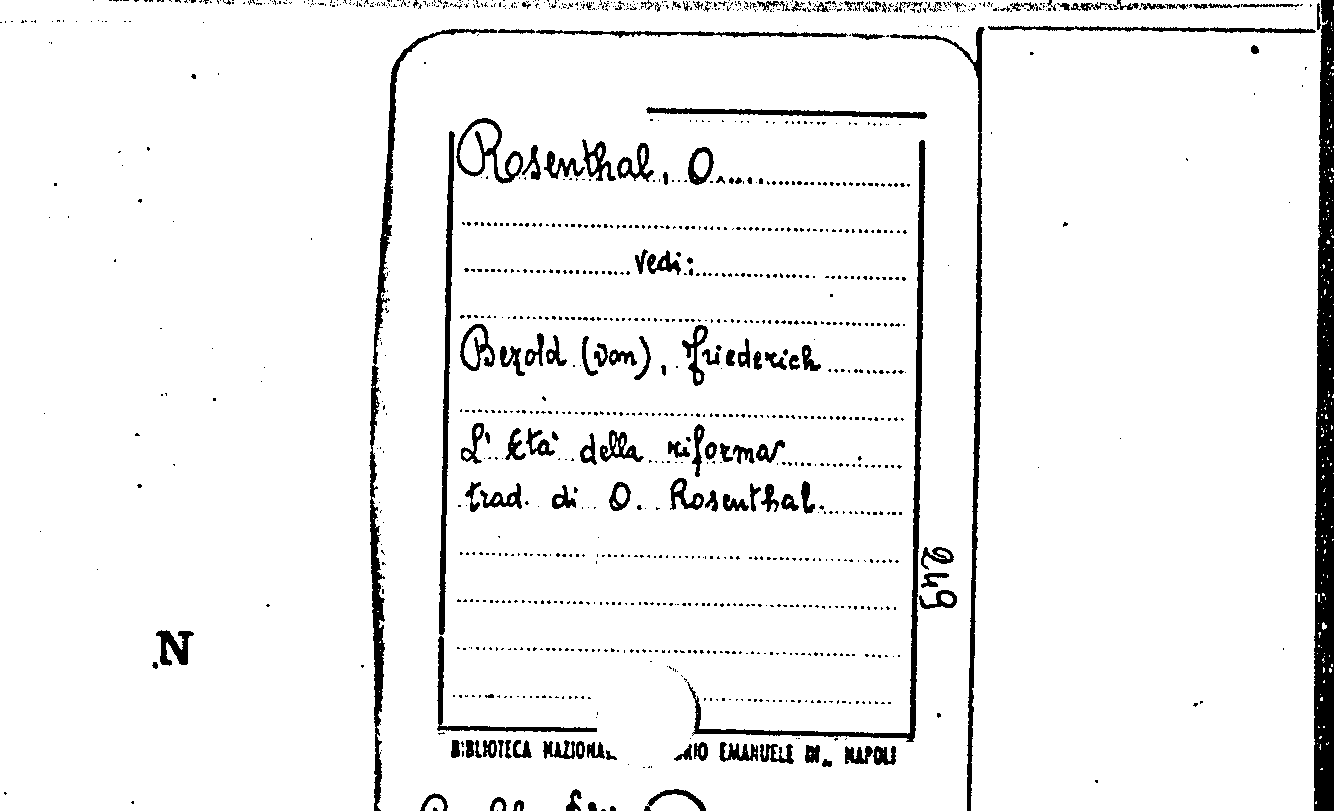 Rosenthal, O.....
vedi:
Bezold (von), Friederich
L'Età della riforma
trad. di O. Rosenthal.
249
N
BIBLIOTECA NAZIONA EMANUELE III„ NAPOLI